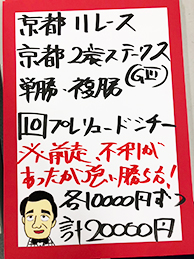 京都11レース
京都2歳ステークス
(GIII)
単勝・複勝
10 プレリュードシチー
※前走、不利が
あったが強い勝ち方!
各10000円ずつ
計20000円